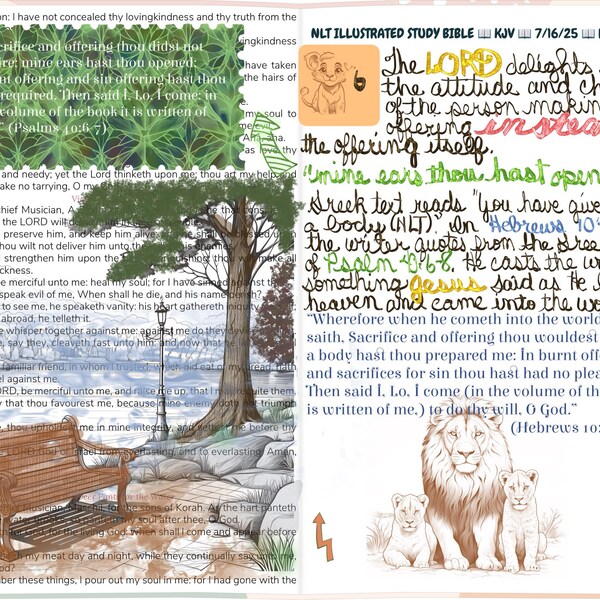 on: I have not concealed thy lovingkindness and thy truth from the
crifice and offering thou didst not
ire; mine ears hast thou opened:
nt offering and sin offering hast thou
required. Then said I, Lo, I come: in
volume of the book it is written of
" (Psalms 40:6-7)
ingkindness
have taken
the hairs of
my soul to
and needy; yet the Lord thinketh upon me: thou art my help and
ake no tarrying, O my
chief Musician, A
the LORD will
preserve him, and keep him alive
thou wilt not deliver him unto the
strengthen him upon the
make all
ckness.
be merciful unto me: heal my soul; for I have sinned against
speak evil of me, When shall he die, and his name perish?
to see me, he speaketh vanity: his heart gathereth iniquity
abroad, he telleth it.
e whisper together against me: against me do they
say they, cleaveth fast unto him: and now that he
familiar friend, in whom I trusted, which did eat of my bread, hath
el against me.
RD, be merciful unto me, and raise me up, that I may requite them.
y that thou favourest me, because mine enemy doth not triumph
thou upholdest me in mine integrity, and settest me before thy
LORD God of Israel from everlasting, and to everlasting. Amen,
for the sons of Korah. As the hart panteth
so panteth my soul after thee, O God.
for the living God: when shall I come and appear before
my meat day and night, while they continually say unto me,
od?
ber these things, I pour out my soul in me: for I had gone with the
NLT ILLUSTRATED STUDY BIBLE 📖 KJV 📖 7/16/25 📖
The LORD delights
the attitude and ch
of the person making
offering instea
the offering itself.
"mine ears thou hast open
Greek text reads "you have give
a body (NLT)." In Hebrews 10:
the writer quotes from the Gree
of Psalm 40:6-8. He casts the w
something Jesus said as He l
heaven and came into the wo
"Wherefore when he cometh into the world
saith, Sacrifice and offering thou wouldest
a body hast thou prepared me: In burnt off
and sacrifices for sin thou hast had no plea
Then said I, Lo, I come (in the volume of th
is written of me,) to do thy will, O God."
(Hebrews 10: